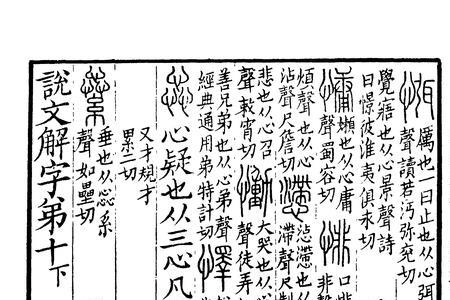 厲也一曰止也从心弭
聲讀若沔弥兗切
覺寤也从心景聲詩
曰憬彼淮夷俱永切
慵嬾也从心庸
聲蜀容切
悱口
非聲
煩聲也从心
沾聲尺詹切
懘惉懘也从
滯聲尺制
悲也从心召
聲敕宵切
慟大哭也从心
聲徒弄
善兄弟也从心弟聲
經典通用弟特計切
懌
惢心疑也从三心凡
又才規才
累二切
繠垂也从惢糸
聲如壘切
說文解字弟十下